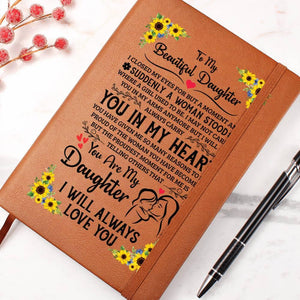 To My
Beautiful Daughter
I CLOSED MY EYES FOR BUT A MOMENT AND
SUDDENLY A WOMAN STOOD
WHERE A GIRL USED TO BE. I MAY NOT CARRY
YOU IN MY ARMS ANYMORE BUT I WILL
ALWAYS CARRY
YOU IN MY HEART
YOU HAVE GIVEN ME SO MANY REASONS TO BE
PROUD OF THE WOMAN YOU HAVE BECOME
BUT THE PROUDEST MOMENT FOR ME IS
TELLING OTHERS THAT
You Are My
Daughter
I WILL ALWAYS
LOVE YOU